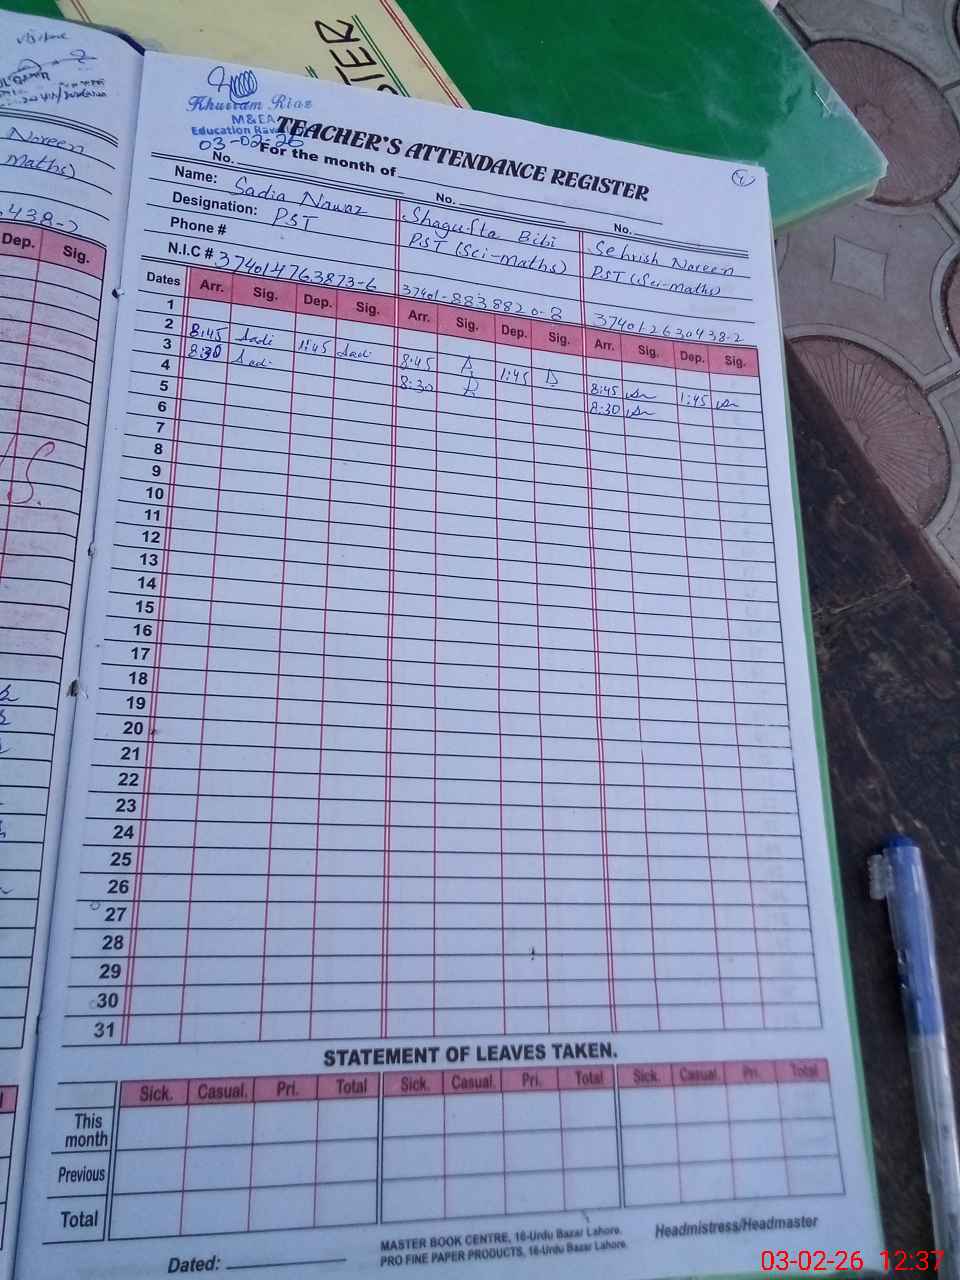 TER
Khurram Riaz
M&EA
Education Raw
03-02-26
TEACHER'S ATTENDANCE REGISTER
For the month of
No. No. No.
Name: Sadia Nawaz Shagufta Bibi Sehrish Noreen
Designation: PST PST (Sci-maths) PST (Sci-maths)
Phone #
N.I.C # 374014763873-6 37401-8838820-8 37401-2630438-2
Noreen
Maths)
438-2
Dep. Sig.
Dates Arr. Sig. Dep. Sig. Arr. Sig. Dep. Sig. Arr. Sig. Dep. Sig.
1
2 8:45 Sadi 1:45 Sadi 8:45 1:45 8:45 1:45
3 8:30 Sadi 8:30 8:30
4
5
6
7
8
9
10
11
12
13
14
15
16
17
18
19
20
21
22
23
24
25
26
27
28
29
30
31
STATEMENT OF LEAVES TAKEN.
Sick. Casual. Pri. Total Sick. Casual. Pri. Total Sick. Casual. Pri. Total
This
month
Previous
Total
Dated:
MASTER BOOK CENTRE, 16-Urdu Bazar Lahore.
PRO FINE PAPER PRODUCTS, 16-Urdu Bazar Lahore.
Headmistress/Headmaster
03-02-26 12:37